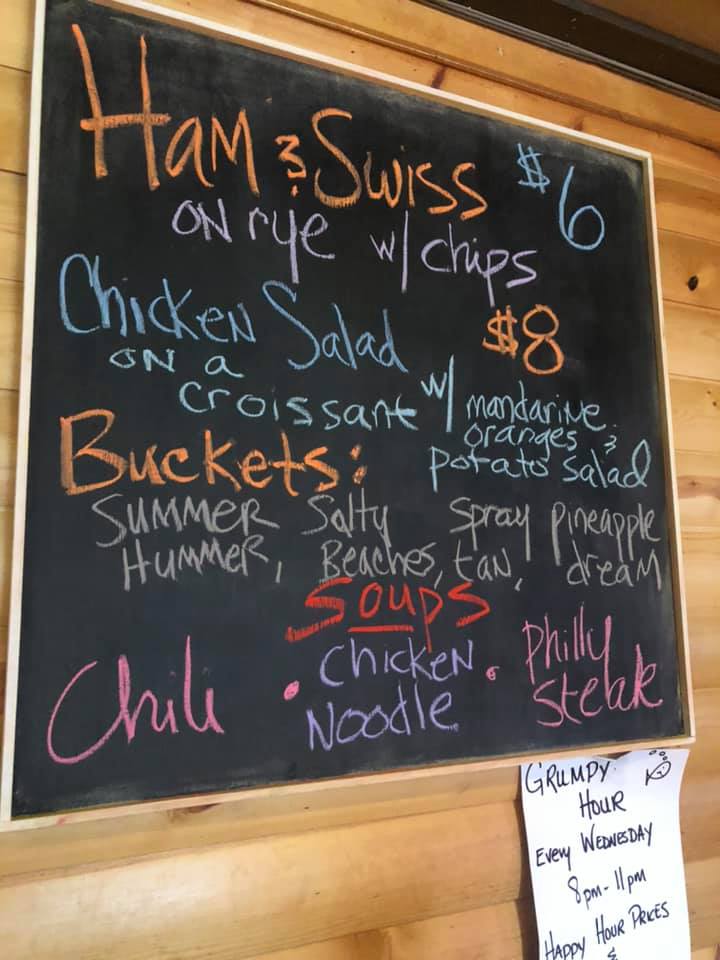 Ham & Swiss $6
on rye w/ chips
Chicken Salad $8
on a
croissant w/ mandarine
oranges &
potato salad
Buckets:
Summer Salty Spray pineapple
Hummer, Beaches, tan, dream
Soups
Chili • Chicken • Philly
Noodle Steak
Grumpy
Hour
Every Wednesday
8pm-11pm
Happy Hour Prices
&